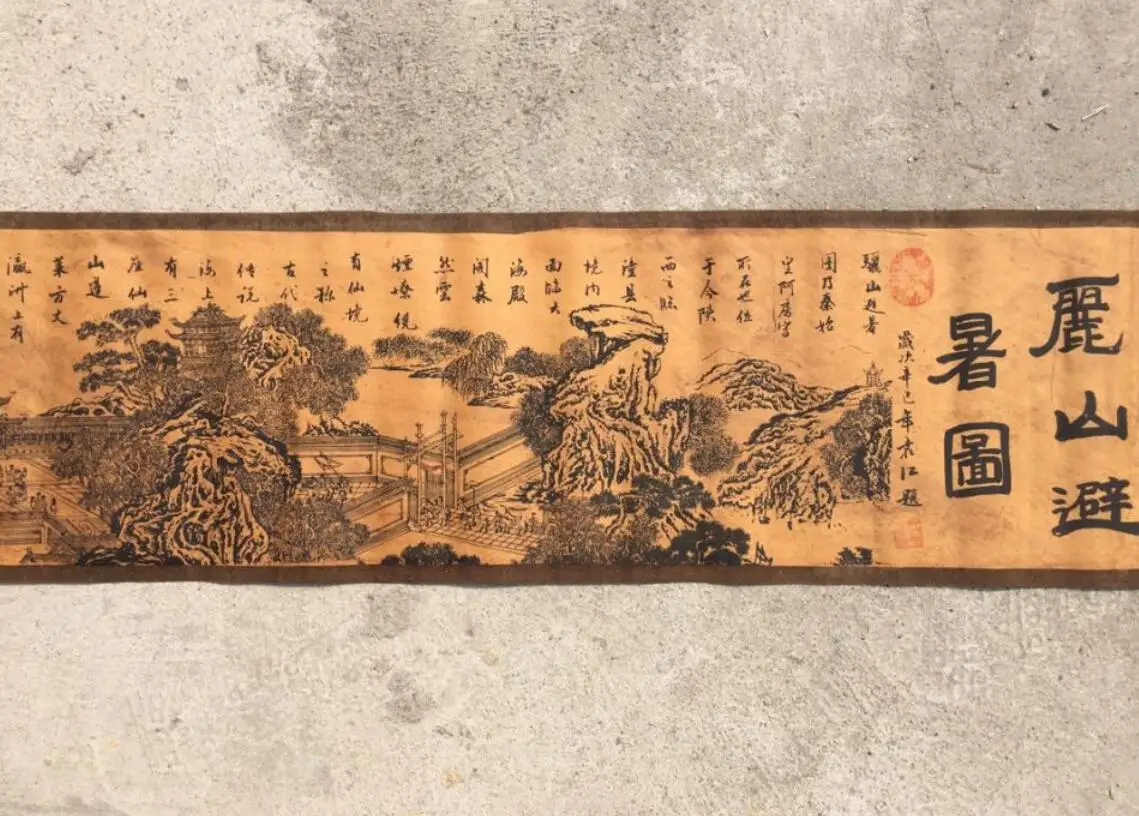 麗山避
暑圖
歲次辛巳年袁江題
驪山避暑
图乃秦始
皇阿房宫
所在地位
于今陕
西之临
潼县
境内
面临大
海殿
阁森
然雲
煙缭绕
有仙境
之称
古代
传说
海上
有三
座仙
山蓬
莱方丈
瀛洲上有